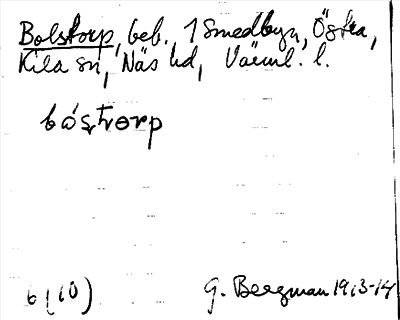 Bolstorp, beb. 1 Smedbyn, Östra,
Kila sn, Näs hd, Värml. l.
bósţorp
6 (10)
G. Bergman 1913-14